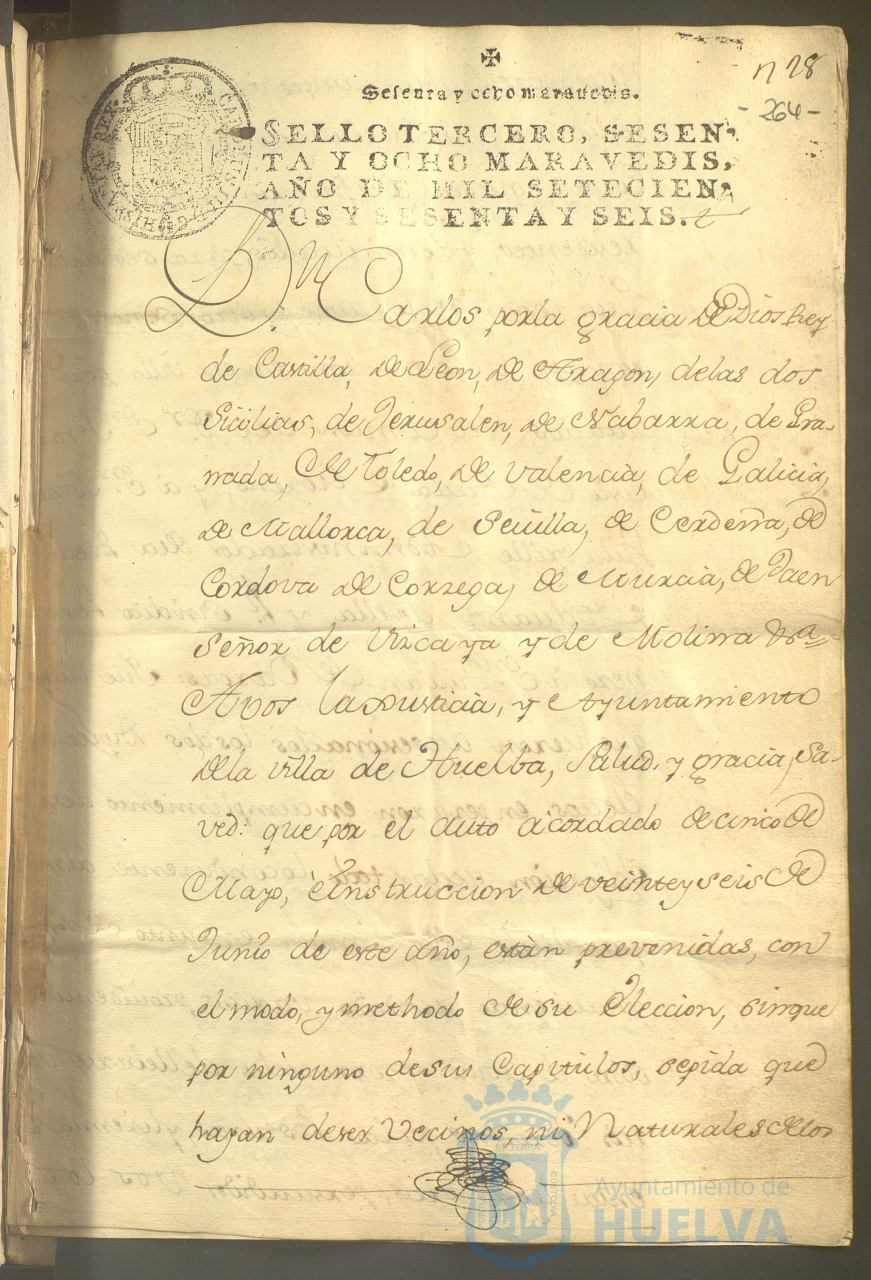 n 28
-264-
Sesenta y ocho maravedis.
SELLO TERCERO, SESEN-
TA Y OCHO MARAVEDIS,
AÑO DE MIL SETECIEN-
TOS Y SESENTA Y SEIS.
Dn Carlos por la gracia de Dios Rey
de Castilla, de Leon, de Aragon, delas dos
Sicilias, de Jerusalen, de Nabarra, de Gra-
nada, de Toledo, de Valencia, de Galicia,
de Mallorca, de Sevilla, de Cerdeña, de
Cordova de Corzega, de Murcia, de Jaen
Señor de Vizcaya y de Molina &ra
A vos la Justicia, y Ayuntamiento
de la villa de Huelba, Salud. y gracia, Sa-
ved: que por el auto acordado de cinco de
Mayo, è Instruccion de veinte y seis de
Junio de este año, estàn prevenidas, con
el modo, y methodo de su Eleccion, sinque
por ninguno desus Capitulos, sepida que
hayan deser Vecinos, ni Naturales delos
Ayuntamiento de
HUELVA